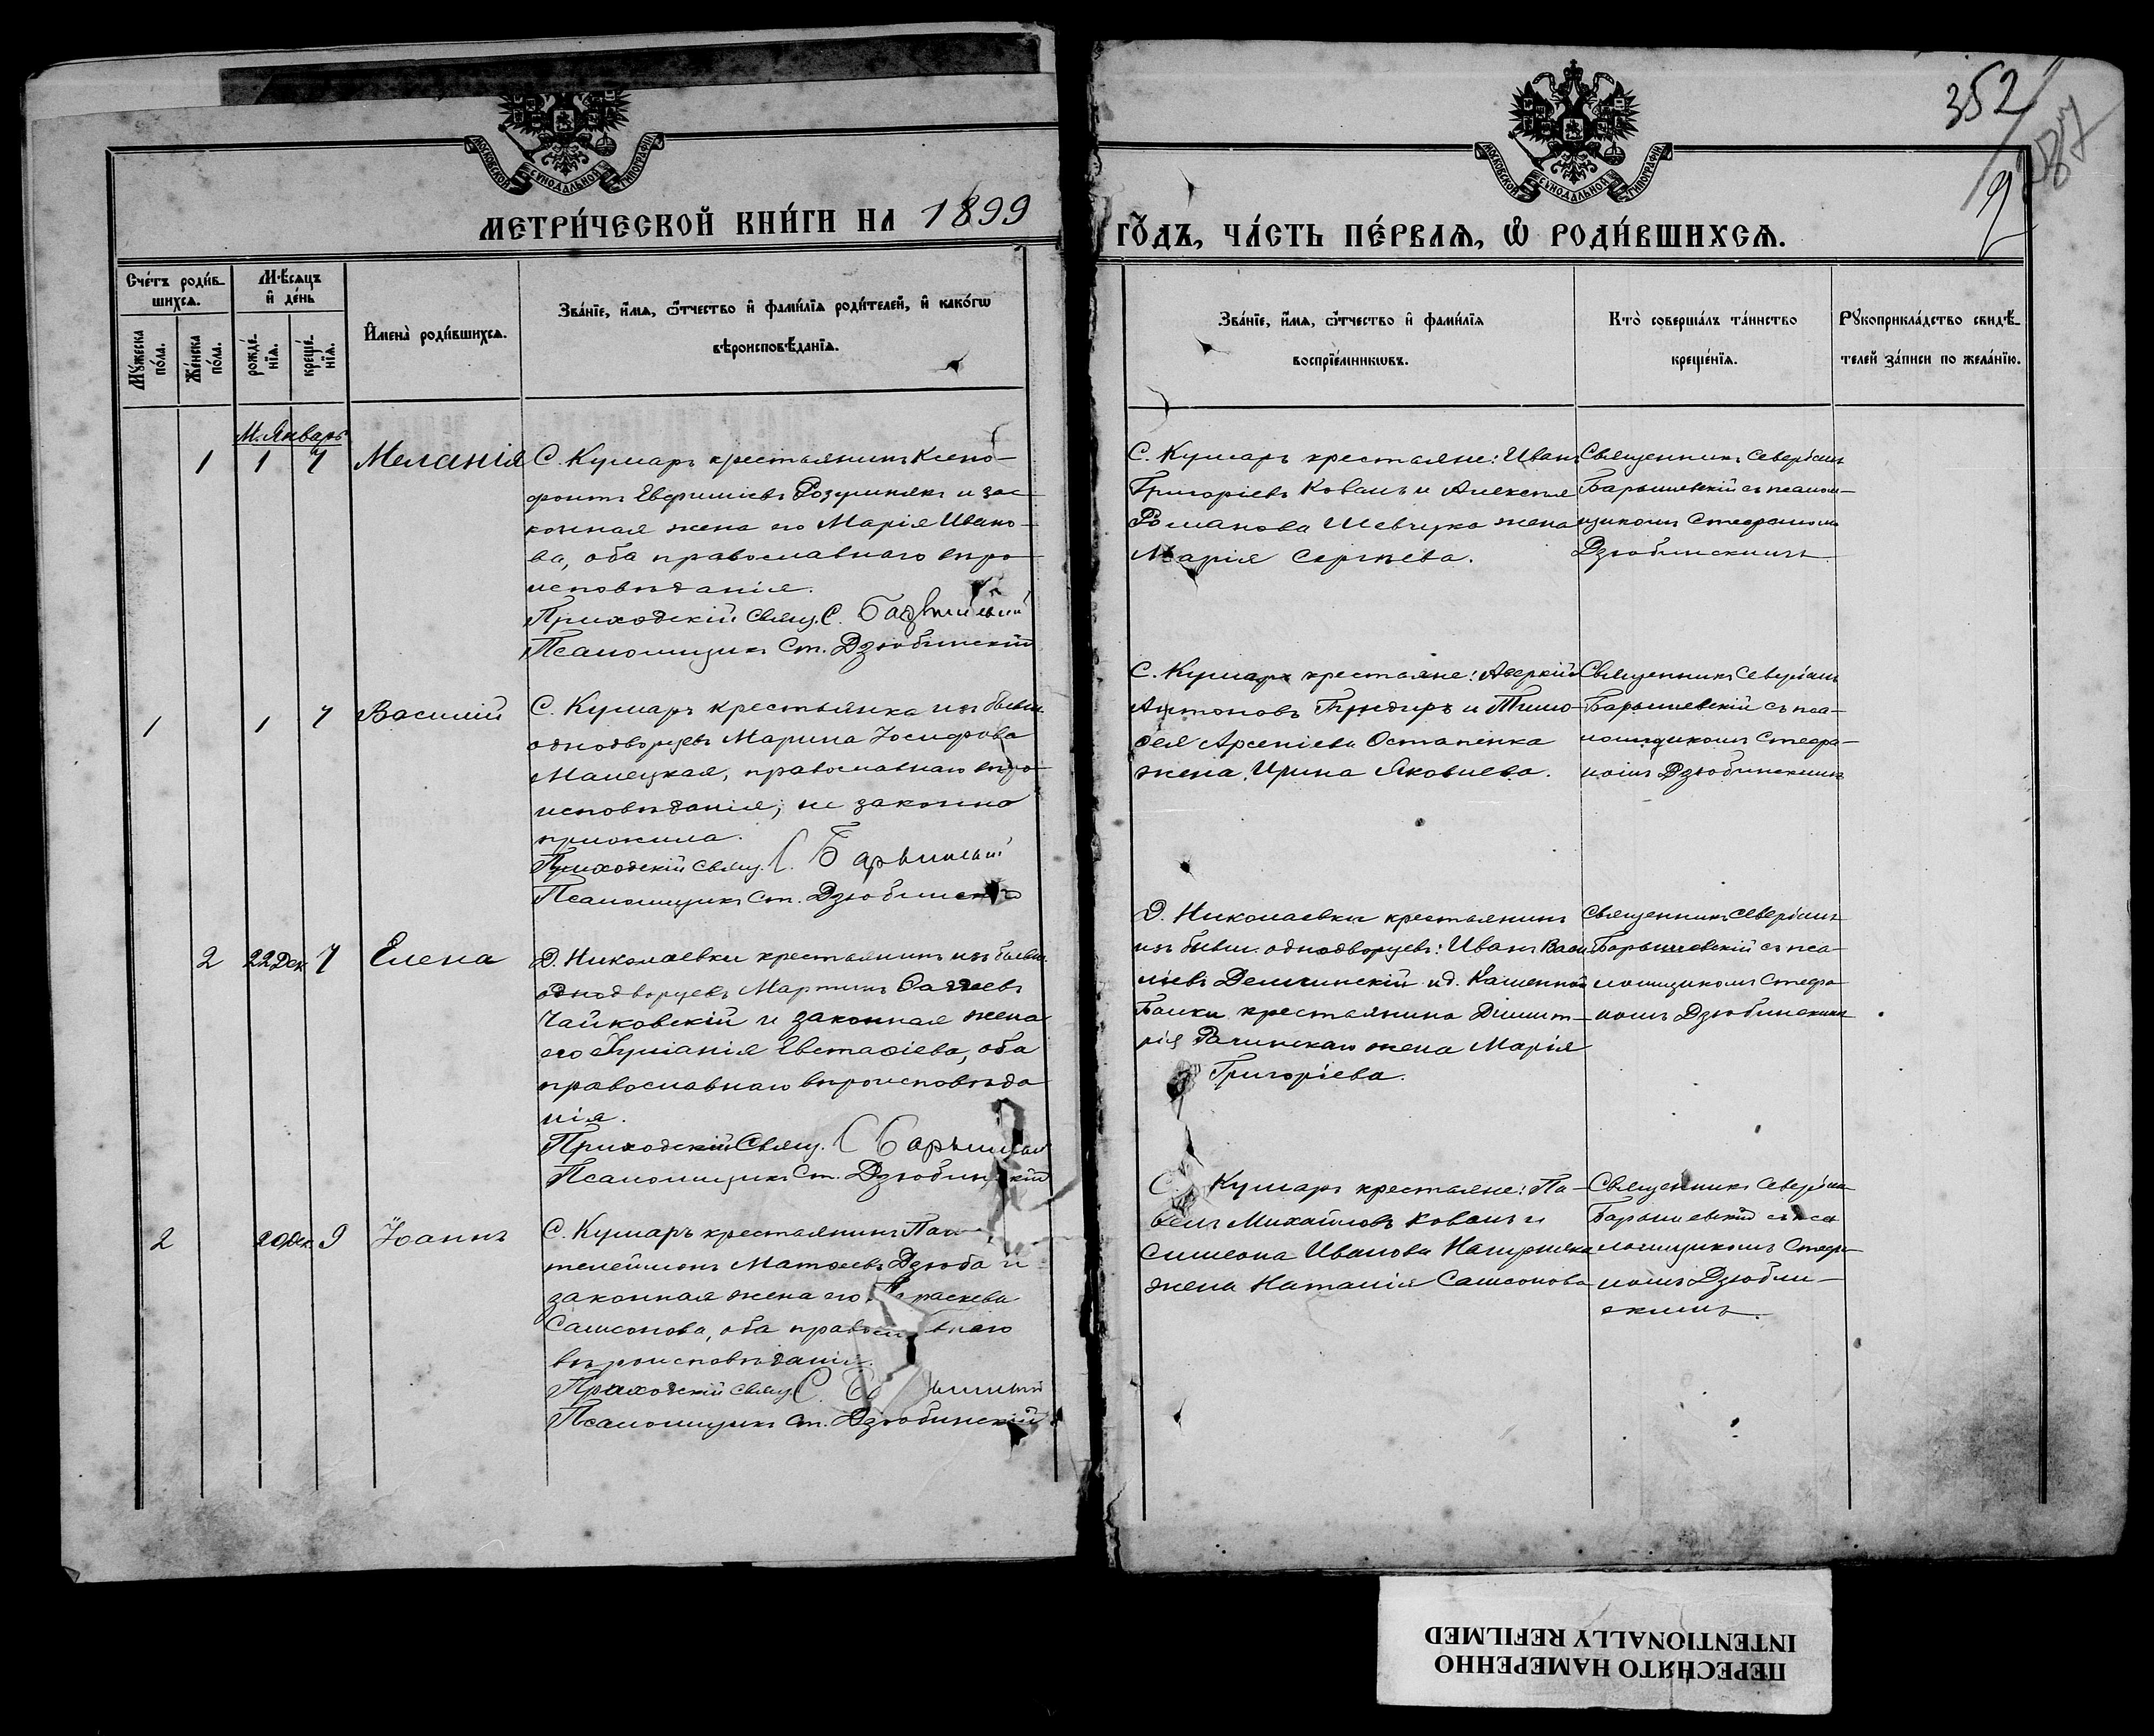 352
287
2
МОСКОВСКОЙ СѴНОДАЛЬНОЙ ТИПОГРАФІИ
МОСКОВСКОЙ СѴНОДАЛЬНОЙ ТИПОГРАФІИ
МЕТРИ́ЧЕСКОЙ КНИ́ГИ НА 1899
ГО́ДЪ, ЧА́СТЬ ПЕ́РВАѦ, Ѡ҆ РОДИ́ВШИХСѦ.
Сче́тъ роди́в-
шихсѧ.
Мѣ́сѧцъ
и҆ де́нь
Мꙋ́жеска
по́ла.
Же́нска
по́ла.
рожде́-
нїѧ.
креще́-
нїѧ.
И҆мена̀ роди́вшихсѧ.
Зва́нїе, и҆́мѧ, ѻ҆́тчество и҆ фами́лїѧ роди́телей, и҆ како́гѡ
вѣроисповѣ́данїѧ.
Зва́нїе, и҆́мѧ, ѻ҆́тчество и҆ фами́лїѧ
воспрїе́мникѡвъ.
Кто̀ соверша́лъ та́инство
креще́нїѧ.
Рꙋкоприкла́дство свидѣ́-
телей за́писи по жела́нїю.
М. Январь
1 1 7 Меланія
С. Кумаръ крестьянинъ Ксено-
фонтъ Евфиміевъ Розумнякъ и за-
конная жена его Марія Ивано-
ва, оба православнаго вѣро-
исповѣданія.
Приходскій Свящ. С.
Псаломщикъ Ст. Дзюбинскій
С. Кумаръ крестьяне: Иванъ
Григоріевъ Коваль и Алексѣя
Романова Шевчука жена
Марія Сергѣева.
Священникъ Северіанъ
Барышевскій съ псалом-
щикомъ Стефаномъ
Дзюбинскимъ
1 1 7 Василій
С. Кумаръ крестьянка изъ бывш.
однодворцевъ Марина Іосифова
Малецкая, православнаго вѣро-
исповѣданія; не законно
прижила.
Приходскій свящ. С.
Псаломщикъ Ст. Дзюбинскій
С. Кумаръ крестьяне: Аверкій
Антоновъ и Тимо-
фея Арсеніева Остапенка
жена Ирина Яковлева.
Священникъ Северіанъ
Барышевскій съ пса-
ломщикомъ Стефа-
номъ Дзюбинскимъ
2 22 Дек. 7 Елена
Д. Николаевки крестьянинъ изъ бывш.
однодворцевъ Мартинъ Фаддеевъ
Чайковскій и законная жена
его Іуліанія Евстафіева, оба
православнаго вѣроисповѣда
нія.
Приходскій Свящ. С.
Псаломщикъ Ст. Дзюбинскій
Д. Николаевки крестьянинъ
изъ бывш. однодворцевъ: Иванъ Васи-
ліевъ и д. Каменной
Балки крестьянина Димит-
рія жена Марія
Григоріева.
Священникъ Северіанъ
Барышевскій съ пса-
ломщикомъ Стефа
номъ Дзюбинскимъ
2 20 Дек. 9 Іоаннъ
С. Кумаръ крестьянинъ Пан-
телеймонъ Матѳеевъ Дзюба и
законная жена его Параскева
Самсонова, оба православнаго
вѣроисповѣданія.
Приходскій свящ. С.
Псаломщикъ Ст. Дзюбинскій
С. Кумаръ крестьяне: Па-
велъ Михайловъ Коваль и
Симеона Иванова
жена Наталія Самсонова
Священникъ Северіанъ
Барышевскій съ пса
ломщикомъ Стефа-
номъ Дзюбин-
скимъ.
ПЕРЕСНЯТО НАМЕРЕННО
INTENTIONALLY REFILMED